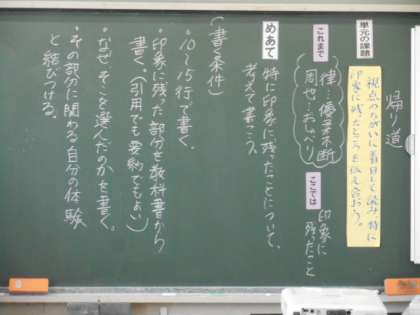 帰り道
単元の課題
視点のちがいに着目して読み、特に
印象に残ったところを伝え合おう。
これまで
律…優柔不断
周也…おしゃべり
ここでは
印象に
残ったこと
めあて
特に印象に残ったことについて、
考えて書こう。
(書く条件)
・10～15行で書く。
・印象に残った部分を教科書から
書く。(引用でも要約でもよい)
・なぜそこを選んだのかを書く。
・その部分に関わる自分の体験
と結びつける。